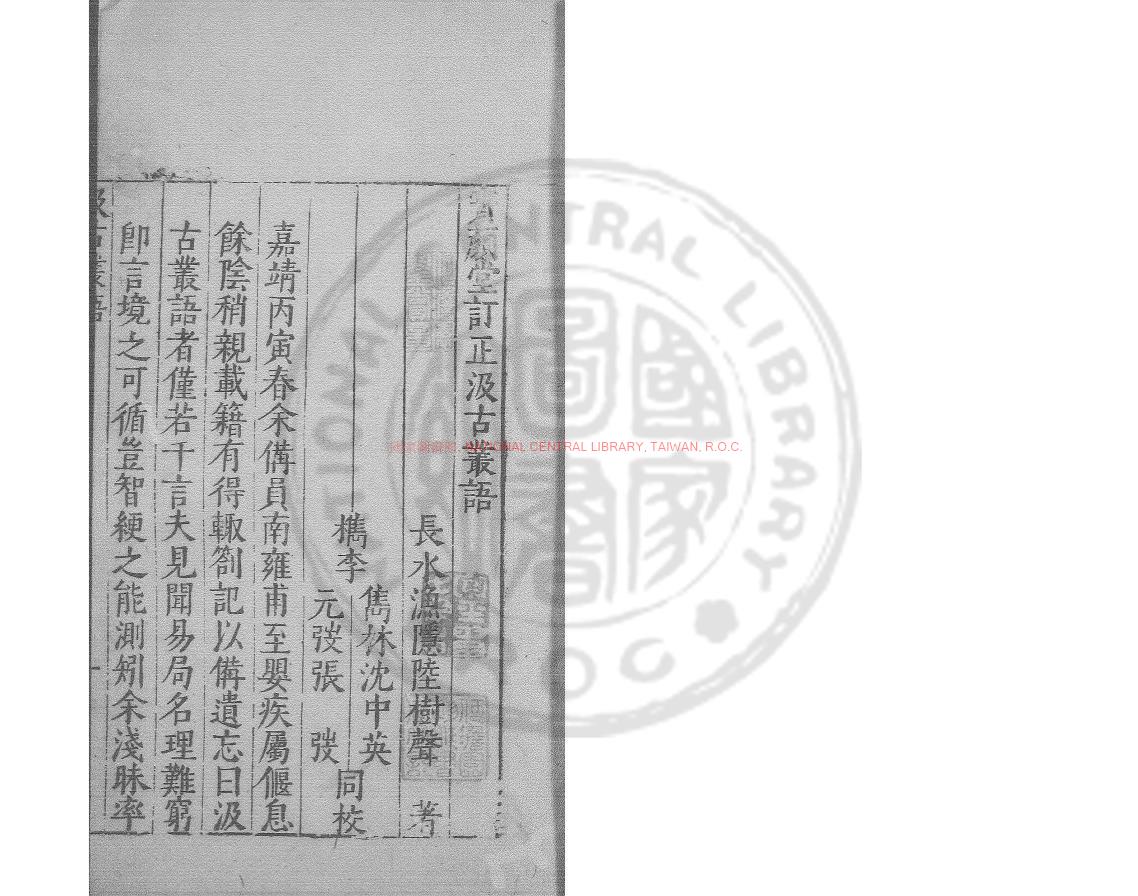 堂訂正汲古叢語
長水漁隱陸樹聲 著
檇李
雋林沈中英
元弢張 弢
同校
嘉靖丙寅春余備員南雍甫至嬰疾屬偃息
餘陰稍親載籍有得輙劄記以備遺忘曰汲
古叢語者僅若干言夫見聞易局名理難窮
卽言境之可循豈智綆之能測矧余淺昧率
汲古叢語
NATIONAL CENTRAL LIBRARY, TAIWAN, R.O.C.
NATIONAL CENTRAL LIBRARY